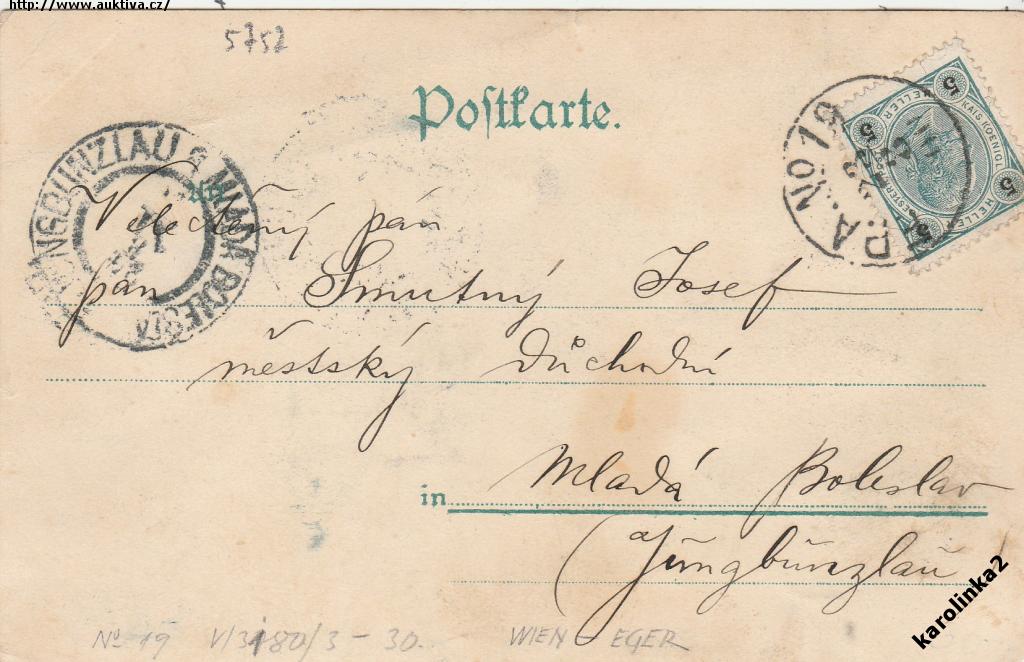 http://www.auktiva.cz/
5752
Postkarte.
P.A. No 19
5 HELLER
KAIS. KOENIGL
JUNGBUNZLAU MLADÁ BOLESLAV
An
Velectěný pán
pán Smutný Josef
městský důchodní
in Mladá Boleslav
(Jungbunzlau
karolinka2
No 19 V/3180/3-30. WIEN-EGER